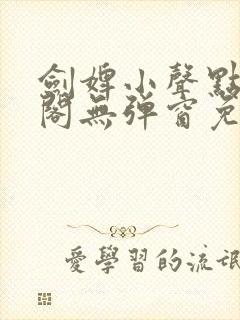 劍婢小聲點
閣無彈窗免
愛學習的流氓